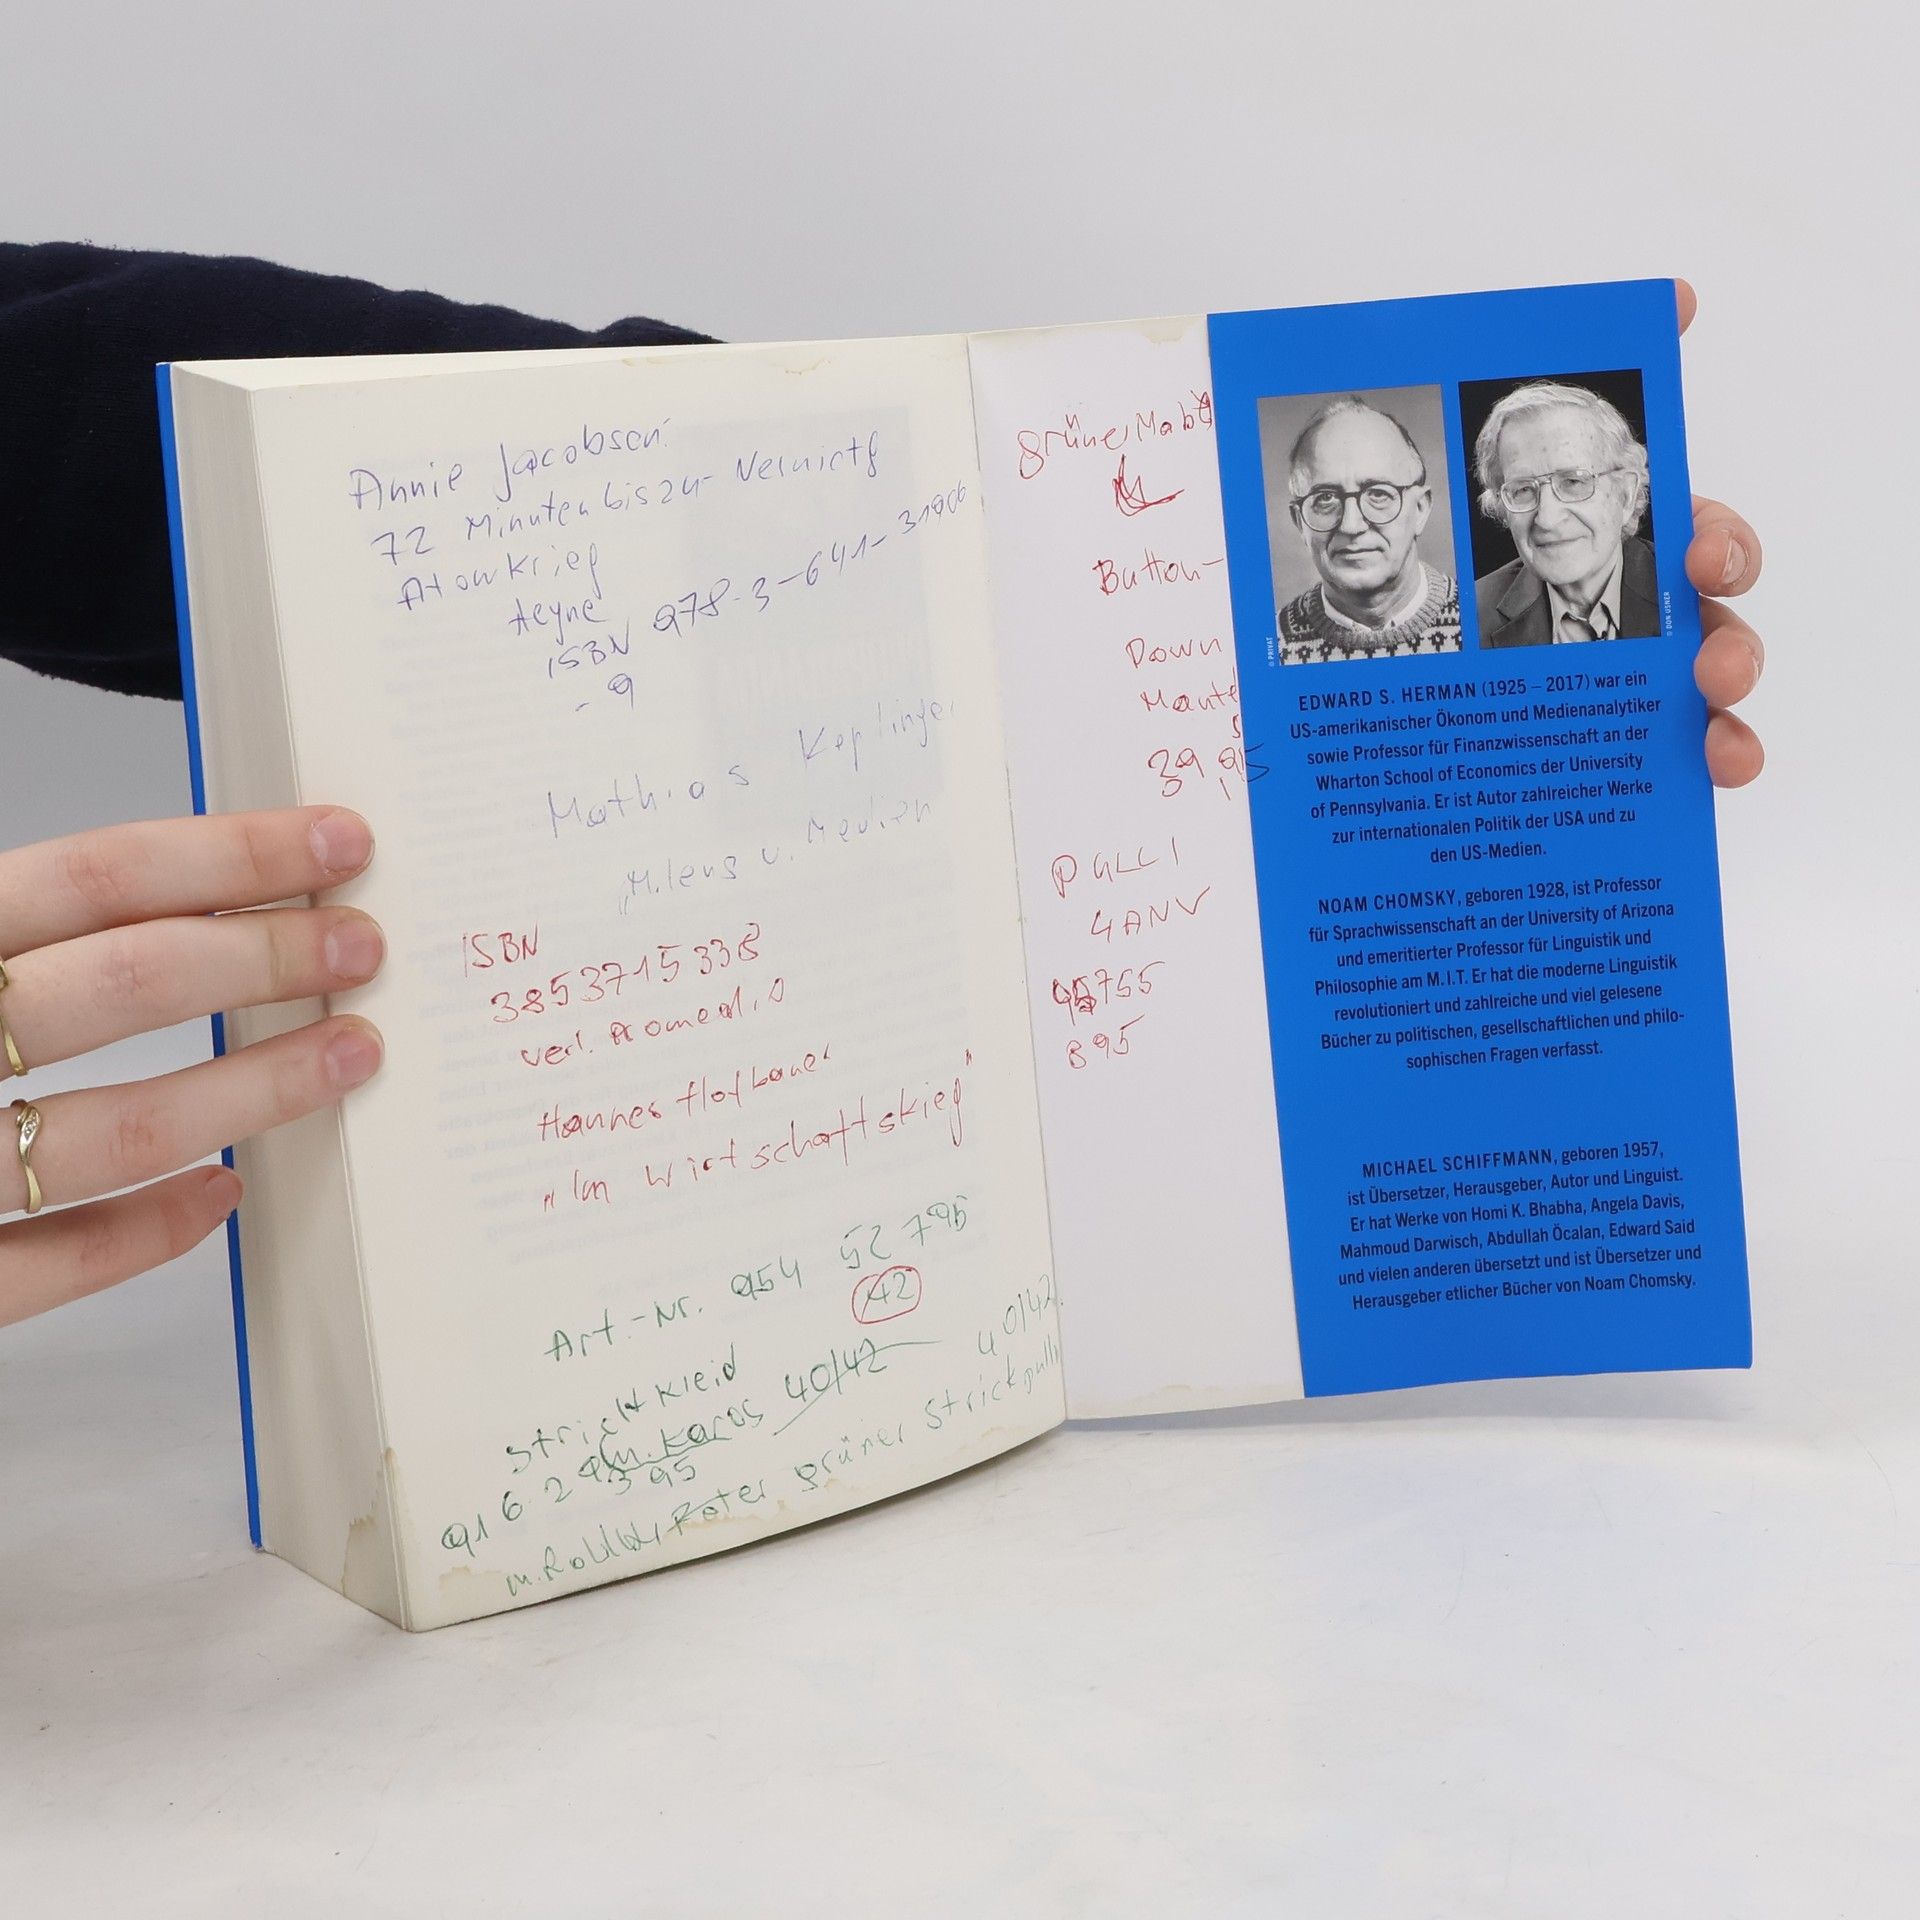 Annie Jacobsen:
72 Minuten bis zur Vernichtg
Atomkrieg
Heyne
ISBN 978-3-641-31906
- 9
Mathias Keplinger
"Milens u. Medien
ISBN
3853715338
verl. Promedia
Hannes Hofbauer
„Im Wirtschaftskieg"
Art.-Nr. 954 52 795
42
Strickkleid
m. Karos 40/42 40/42
91 6 2 395
m. Rollkr, Roter grüner Strickpulli
grüner
Button-
Down
Mante
39,95
PULLI
95755
895
© PRIVAT
© DON USNER
EDWARD S. HERMAN (1925 – 2017) war ein
US-amerikanischer Ökonom und Medienanalytiker
sowie Professor für Finanzwissenschaft an der
Wharton School of Economics der University
of Pennsylvania. Er ist Autor zahlreicher Werke
zur internationalen Politik der USA und zu
den US-Medien.
NOAM CHOMSKY, geboren 1928, ist Professor
für Sprachwissenschaft an der University of Arizona
und emeritierter Professor für Linguistik und
Philosophie am M.I.T. Er hat die moderne Linguistik
revolutioniert und zahlreiche und viel gelesene
Bücher zu politischen, gesellschaftlichen und philo-
sophischen Fragen verfasst.
MICHAEL SCHIFFMANN, geboren 1957,
ist Übersetzer, Herausgeber, Autor und Linguist.
Er hat Werke von Homi K. Bhabha, Angela Davis,
Mahmoud Darwisch, Abdullah Öcalan, Edward Said
und vielen anderen übersetzt und ist Übersetzer und
Herausgeber etlicher Bücher von Noam Chomsky.